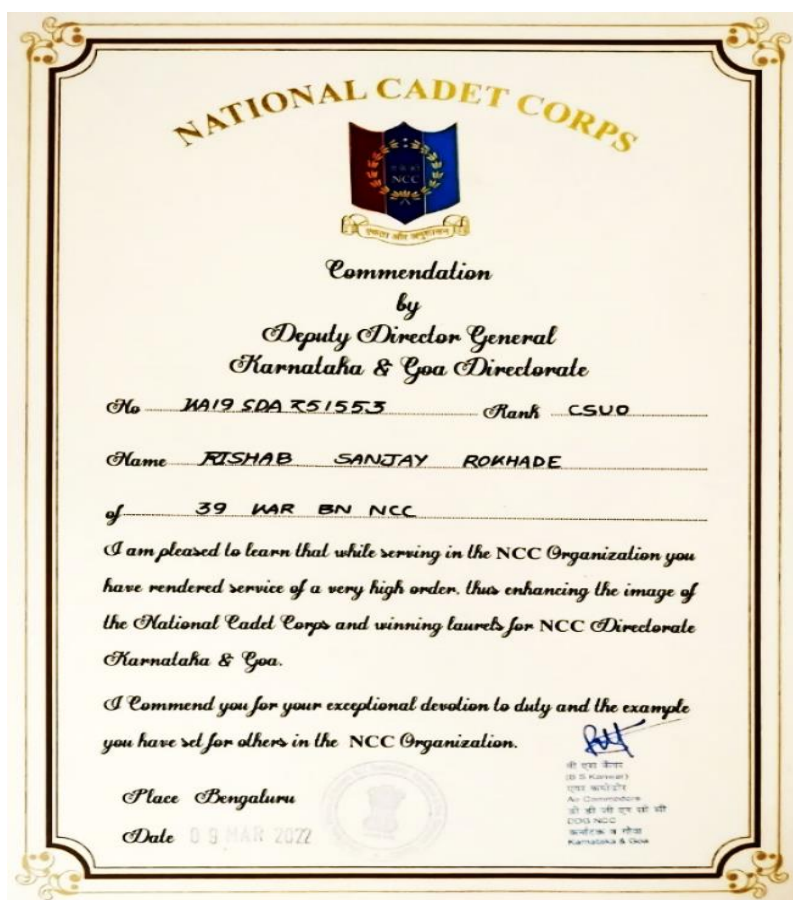 NATIONAL CADET CORPS
NCC
एकता और अनुशासन
Commendation
by
Deputy Director General
Karnataka & Goa Directorate
No KA19 SDA R51553 Rank CSUO
Name RISHAB SANJAY ROKHADE
of 39 KAR BN NCC
I am pleased to learn that while serving in the NCC Organization you
have rendered service of a very high order, thus enhancing the image of
the National Cadet Corps and winning laurels for NCC Directorate
Karnataka & Goa.
I Commend you for your exceptional devotion to duty and the example
you have set for others in the NCC Organization.
(B S Kanwar)
एयर कमोडोर
Air Commodore
डी डी जी एन सी सी
DDG NCC
कर्नाटक व गोवा
Karnataka & Goa
Place Bengaluru
Date 09 MAR 2022